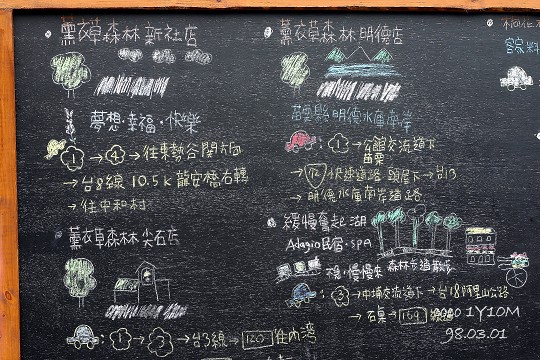 薰衣草森林 新社店
夢想・幸福・快樂
1 → 4 → 往東勢谷關方向
→ 台8線 10.5K 龍安橋右轉
→ 往中和村
薰衣草森林 尖石店
1 → 3 → 台3線 → 120 往內灣
薰衣草森林 明德店
苗栗縣明德水庫南岸
1 → 公館交流道下
苗栗
→ 72 快速道路 頭屋下 → 台13
→ 明德水庫南岸道路
緩慢奮起湖
Adagio民宿・SPA
慢・慢慢來 森林步道散步
3 → 中埔交流道下 → 台18阿里山公路
→ 石棹 → 169
1Y10M
98.03.01